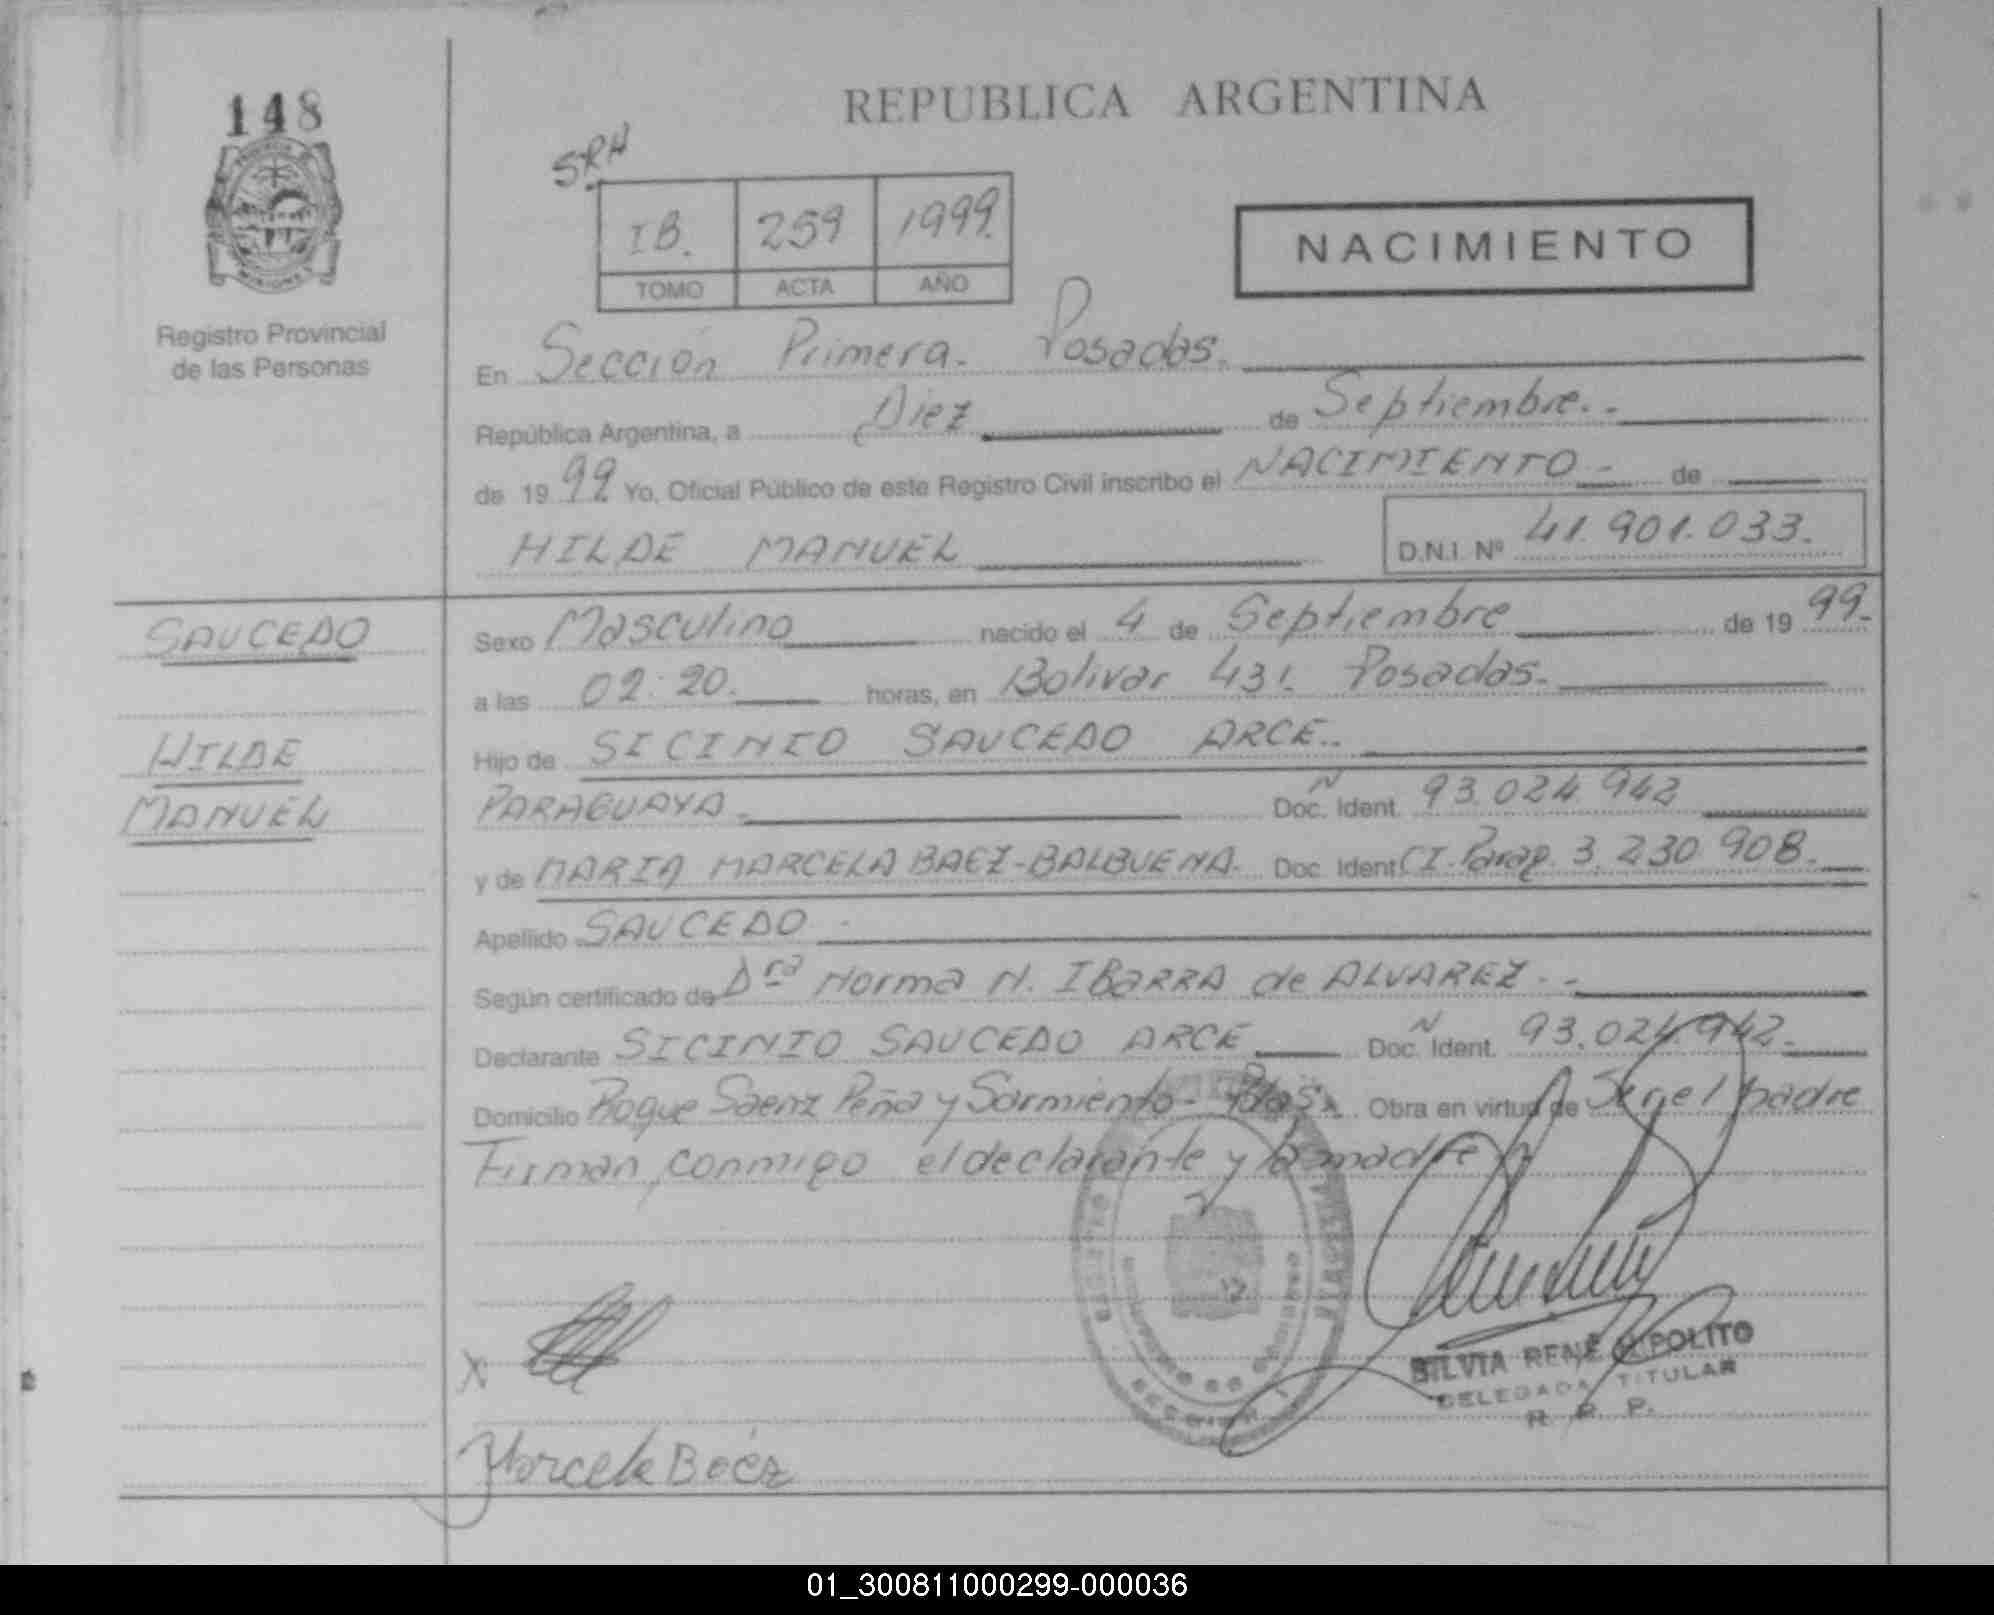 148
REPUBLICA ARGENTINA
SRH
IB. 259 1999.
TOMO ACTA AÑO
NACIMIENTO
Registro Provincial
de las Personas
En Sección Primera. Posadas.
República Argentina, a Diez de Septiembre.
de 19 99 Yo, Oficial Público de este Registro Civil inscribo el NACIMIENTO de
HILDE MANUEL D.N.I. Nº 41.901.033.
SAUCEDO
HILDE
MANUEL
Sexo Masculino nacido el 4 de Septiembre de 19 99.
a las 02:20. horas, en Bolivar 431. Posadas.
Hijo de SICINIO SAUCEDO ARCE.
PARAGUAYA. Doc. Ident. 93.024.942
y de MARIA MARCELA BAEZ-BALBUENA. Doc. Ident. CI. Parag. 3.230.908.
Apellido SAUCEDO
Según certificado de Dra Norma N. IBARRA de ALVAREZ.
Declarante SICINIO SAUCEDO ARCE Doc. Ident. 93.024.942.
Domicilio Roque Saenz Peña y Sarmiento - Pdas. Obra en virtud de Ser el padre
Firman conmigo el declarante y la madre
X
Marcela Baéz
SILVIA RENÉ HIPOLITO
DELEGADA TITULAR
R. P. P.
01_300811000299-000036